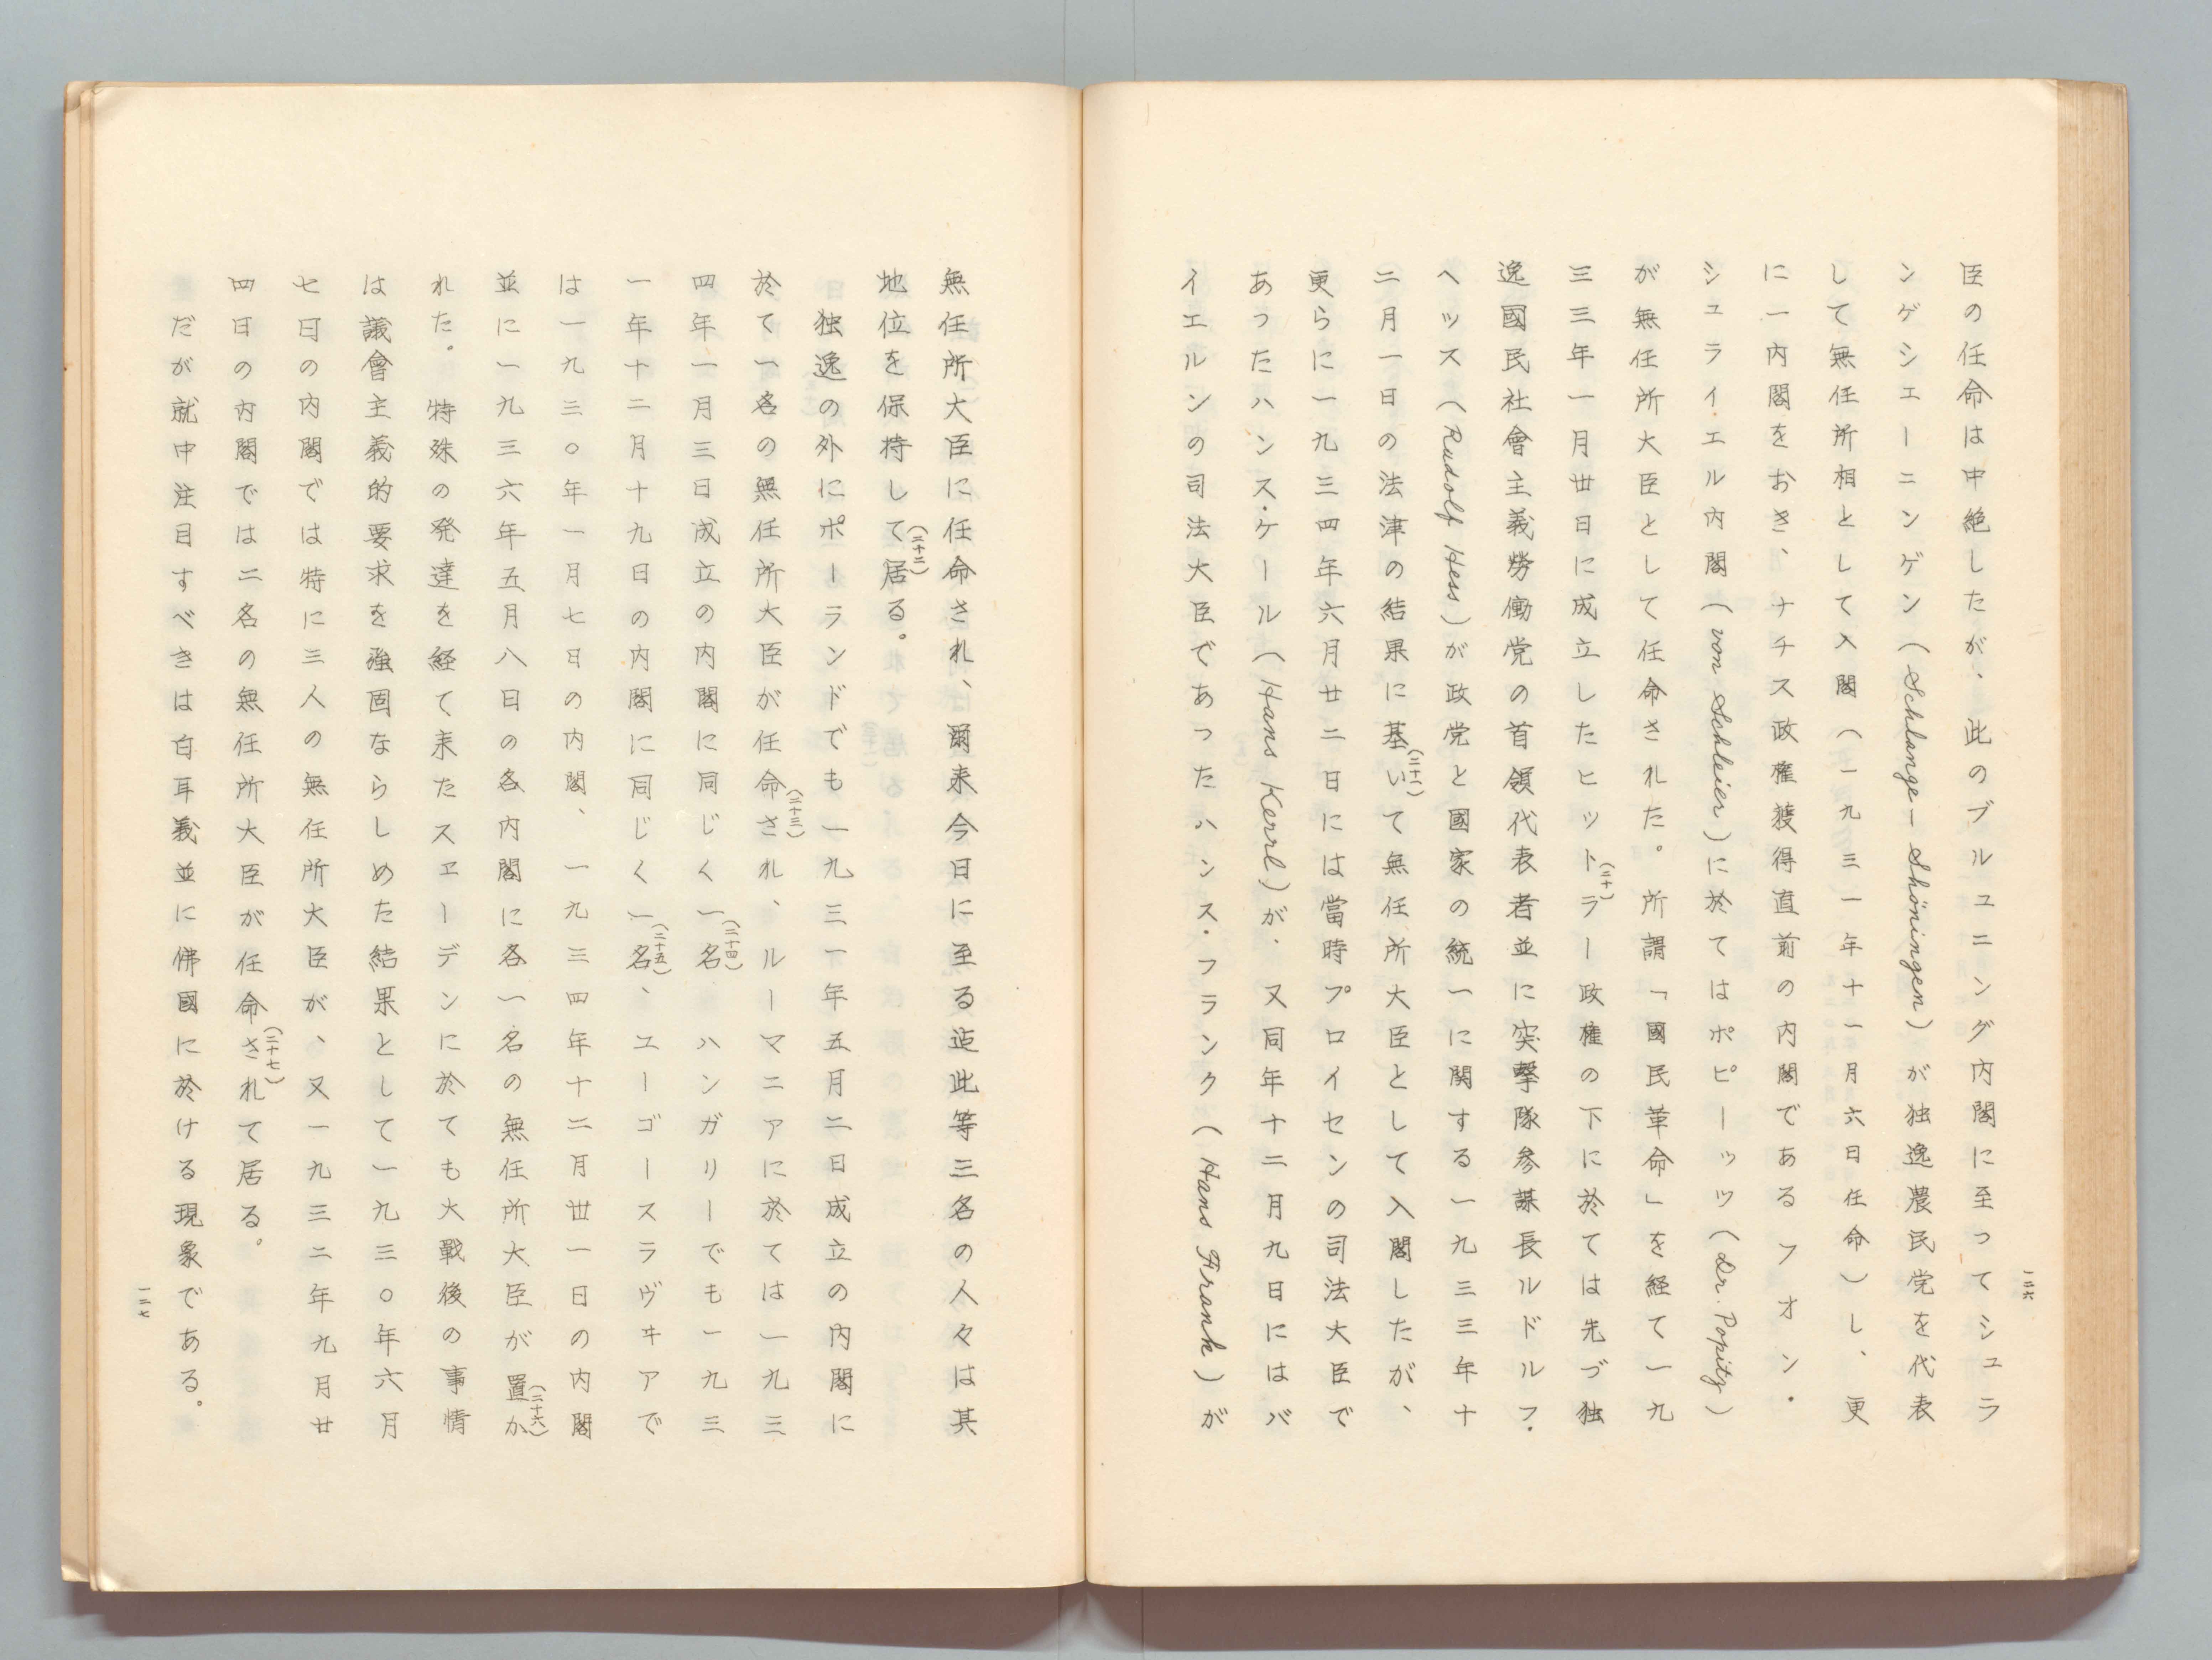 一二六
臣の任命は中絶したが、此のブルユニング内閣に至ってシュラ
ンゲシエーニンゲン(Schlange-Shöningen)が独逸農民党を代表
して無任所相として入閣(一九三一年十一月六日任命)し、更
に一内閣をおき、ナチス政権獲得直前の内閣であるフオン・
シュライエル内閣(von Schleier)に於てはポピーッツ(Dr. Popitz)
が無任所大臣として任命された。所謂「國民革命」を経て一九
三三年一月廿日に成立したヒットラー(二十)政権の下に於ては先づ独
逸國民社會主義勞働党の首領代表者並に突擊隊参謀長ルドルフ・
ヘッス(Rudolf Hess)が政党と國家の統一に関する一九三三年十
二月一日の法津の結果に基い(二十一)て無任所大臣として入閣したが、
更らに一九三四年六月廿二日には當時プロイセンの司法大臣で
あったハンス・ケール(Hans Kerrl)が、又同年十二月九日にはバ
イエルンの司法大臣であったハンス・フランク(Hans Frank)が
無任所大臣に任命され、爾来今日に至る迄此等三名の人々は其
地位を保持して居(二十二)る。
独逸の外にポーランドでも一九三一年五月二日成立の内閣に
於て一名の無任所大臣が任命さ(二十三)れ、ルーマニアに於ては一九三
四年一月三日成立の内閣に同じく一名(二十四)ハンガリーでも一九三
一年十二月十九日の内閣に同じく一名(二十五)、ユーゴースラヴヰアで
は一九三〇年一月七日の内閣、一九三四年十二月丗一日の内閣
並に一九三六年五月八日の各内閣に各一名の無任所大臣が置か(二十六)
れた。特殊の発達を経て来たスエーデンに於ても大戰後の事情
は議會主義的要求を強固ならしめた結果として一九三〇年六月
七日の内閣では特に三人の無任所大臣が、又一九三二年九月廿
四日の内閣では二名の無任所大臣が任命さ(二十七)れて居る。
だが就中注目すべきは白耳義並に佛國に於ける現象である。
一二七